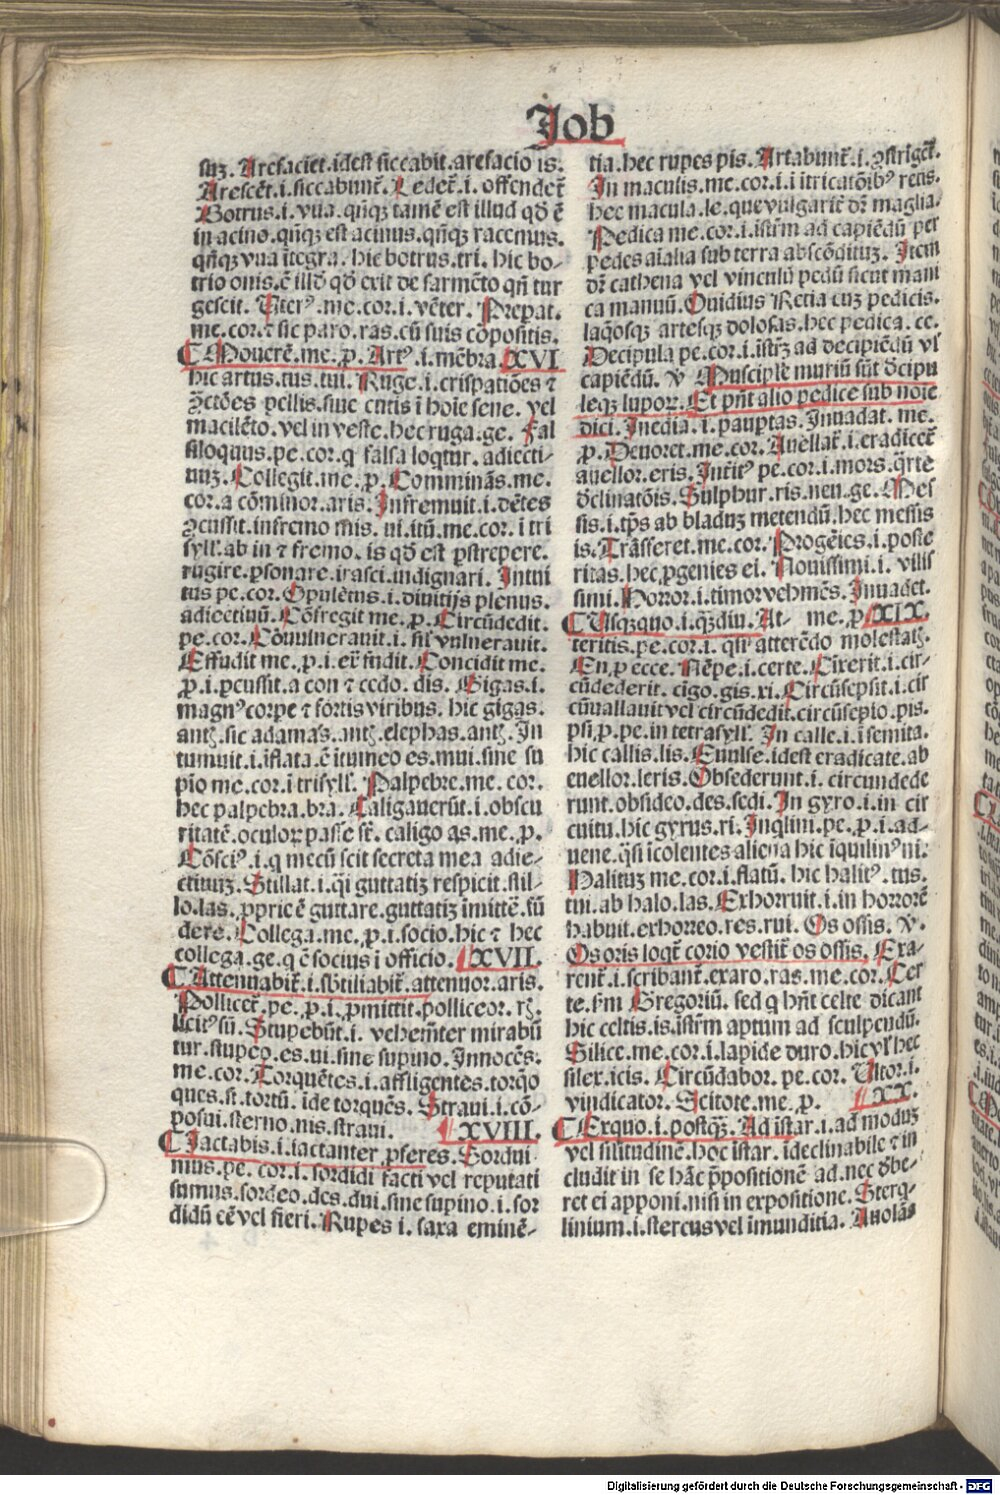 Job
suꝫ. Arefaciet.idest siccabit.arefacio is.
Arescēt.i.siccabunt̄. Ledet̄.i.offendet̄
Botrus.i.vua.qn̄qꝫ tamē est illud qd̄ ē
in acino.qn̄qꝫ est acinus.qn̄qꝫ racemus.
qn̄qꝫ vua ītegra. hic botrus.tri. hic bo-
trio onis.ē illd̄ qd̄ exit de sarmēto qn̄ tur
gescit. Uterꝰ.me.cor.i.vēter. Prepat.
me.cor.⁊ sic paro.ras.cū suis cōpositis.
Mouerē.me.ꝓ. Artꝰ.i.mēbra. XVI
hic artus.tus.tui. Ruge.i.crispatiōes ⁊
ꝯctōes pellis.siue cutis ī hoīe sene. vel
macilēto.vel in veste.hec ruga.ge. Fal
siloquus.pe.cor.q falsa loqtur.adiecti-
uuꝫ. Collegit.me.ꝓ. Comminās.me.
cor.a cōminor.aris. Infremuit.i.dētes
ꝯcussit.infremo mis. ui.itū.me.cor.i tri
syll̄.ab in ⁊ fremo. is qd̄ est ꝑstrepere.
rugire.ꝑsonare.irasci.indignari. Intui
tus pe.cor. Opulētus.i.diuitijs plenus.
adiectiuū. Cōfregit me.ꝓ. Circūdedit
pe.cor. Cōuulnerauit.i.sil̄ vulnerauit.
Effudit me.ꝓ.i.ex̄ fudit. Concidit me.
ꝓ.i.ꝑcussit.a con ⁊ cedo. dis. Gigas.i.
magnꝰ corpe ⁊ fortis viribus. hic gigas.
antꝫ.sic adamas.antꝫ.elephas.antꝫ. In
tumuit.i.iflata.ē ītumeo es.mui.sine su
pīo me.cor.ī trisyll̄. Palpebre.me. cor.
hec palpebra.bra. Caligauerūt.i.obscu
ritatē.oculoꝝ passe st̄. caligo as.me.ꝓ.
Cōsciꝰ.i.q mecū scit secreta mea adie-
ctiuuꝫ. Stillat.i.q̄i guttatiꝫ respicit.stil-
lo.las.ꝓpric ē guttare.guttatiꝫ īmittē.fū
dere. Collega.me.ꝓ.i.socio.hic ⁊ hec
collega.ge.q ē socius ī officio. XVII.
Attenuabit̄.i.sb̄tiliabit̄.attenuor.aris.
Pollicet̄.pe.ꝓ.i.ꝓmittit.polliceor.rꝫ.
licitꝰ sū. Stupebūt.i. vehemt̄er mirabū
tur.stupeo.es.ui.sine supino. Innocēs.
me.cor. Torquētes.i.affligentes.torqo
ques.si.tortū. īde torquēs. Straui.i.cō-
posui.sterno.nis.straui. XVIII.
Jactabis.i.iactanter ꝓferes. Sordui-
mus.pe.cor.i.sordidi facti vel reputati
sumus.sordeo.des.dui.sine supino.i.sor
didū eē vel fieri. Rupes i. saxa eminē-
tia.hec rupes pis. Artabunt̄.i.ꝯstrigēt̄.
In maculis.me.cor.i.ī ītricatōibꝰ retis.
hec macula.le.que vulgarit̄ dr̄ maglia.
Pedica me.cor.i.istr̄m ad capiēdū per
pedes aīalia sub terra abscōdituꝫ. Item
dr̄ cathena vel vinculū pedū sicut mani
ca manuū. Ouidius Retia cuꝫ pedicis.
laq̄osqꝫ artesqꝫ dolosas.hec pedica. ce.
Decipula pe.cor.i.īstr̄ꝫ ad decipiēdū vl̄
capiēdū. v̄ Muscipl̄e muriū sūt d̄cipu
leqꝫ lupor. Et pn̄t alio pedice sub noīe
dici. Inedia.i.paupt̄as. Inuadat. me.
ꝓ. Deuoret.me.cor. Auellat̄.i.eradicet̄
auellor.eris. Interitꝰ pe.cor.i.mors.q̄rte
d̄clinatōis. Sulphur.ris.neu.ge. Mes
sis.i.tp̄s ab bladuꝫ metendū.hec messis
is. Trāsseret.me.cor. Progēies.i.poste
ritas.hec.ꝓgenies ei. Nouissimi.i. vilis
simi. Horror.i.timor vehmēs. Inuadet.
Usqꝫquo.i.qꝫdiu. At- me.ꝓ XIX.
teritis.pe.cor.i.qsi atterēdo molestatꝫ.
En.ꝓ ecce. Nēpe.i.certe. Cixerit.i.cir-
cūdederit. cigo.gis.xi. Circūsepsit.i.cir
cūuallauit vel circūdedit.circūsepio.pis.
psi.ꝓ.pe.in tetrasyll̄. In calle.i.īsemita.
hic callis.lis. Euulse.idest eradicate.ab
euellor.leris. Obsederunt.i. circundede
runt.obsideo.des.sedi. In gyro.i.in cir
cuitu.hic gyrus.ri. Inqlini.pe.ꝓ.i.ad-
uene.q̄si īcolentes aliena hic īquilinꝰ ni.
Halituꝫ me.cor.i.flatū. hic halitꝰ. tus.
tui.ab halo.las. Exhorruit.i.in horrorē
habuit.exhorreo.res.rui. Os ossis. v̄.
Os oris loqt̄ corio vestit̄ os ossis. Exa-
rent̄.i.scribant̄.exaro.ras.me.cor. Cer
te.fm̄ Gregoriū. sed q hn̄t celte dicant
hic celtis.is.īstr̄m aptum ad sculpendū.
Silice.me.cor.i.lapide duro.hic vl̄ hec
silex.icis. Circūdabor. pe.cor. Ultor.i.
vindicator. Scitote.me.ꝓ. XX.
Exquo.i.postqꝫ. Ad īstar.i.ad moduꝫ
vel silitudinē.hoc īstar.ideclinabile ⁊ in
cludit in se hāc p̄positionē ad.nec d̄be-
ret ei apponi.nisi in expositione. Sterq-
linium.i.stercus vel īmunditia. Auolās
Digitalisierung gefördert durch die Deutsche Forschungsgemeinschaft - DFG